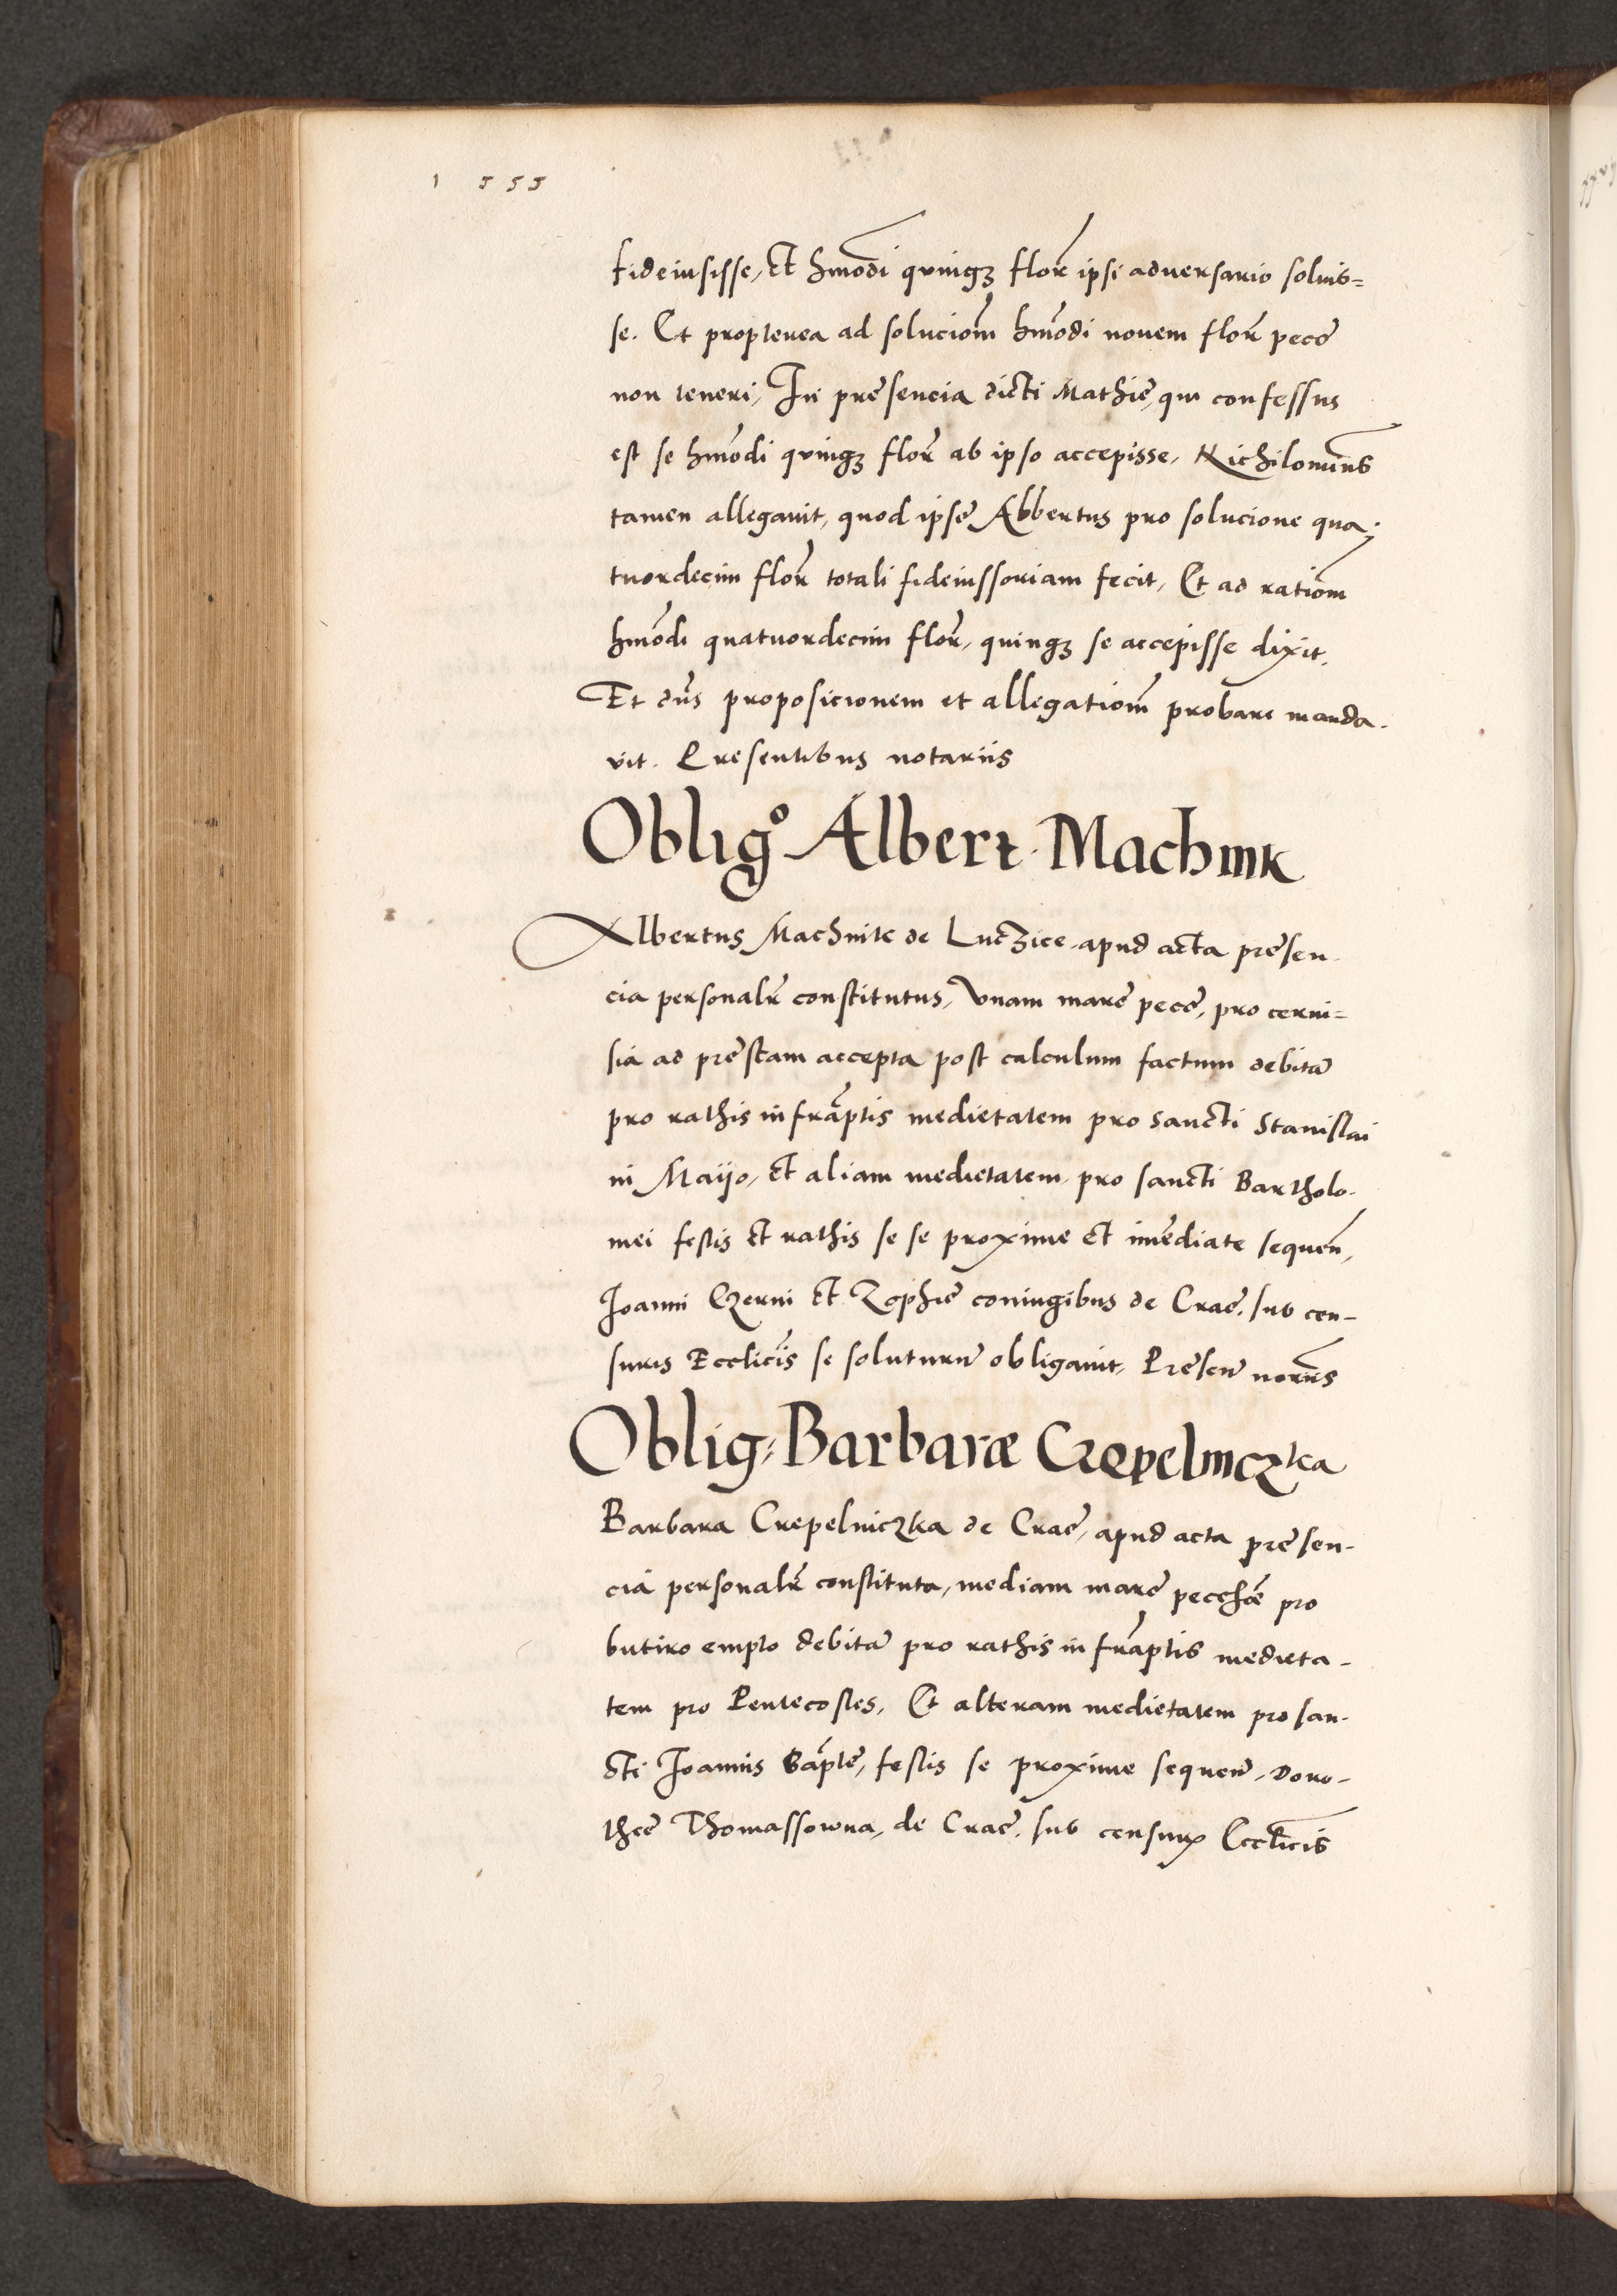 1 5 5 5
fideiusisse, et hmõdi quinqȝ flor̃ ipsi adversario soluis=
se. Et propterea ad soluciom̃ hmõdi novem flor̃ pecc̃
non teneri, In presencia dicti Mathie, qui confessus
est se hmõdi quinqȝ flor̃ ab ipso accepisse, Nichilomin̄9
tamen allegavit, quod ipse Albertus pro solucione qua-
tuordecim flor̃ totali fideiussoriam fecit, Et ad ratiom̃
hmõdi quatuordecim flor̃, quinqȝ se accepisse dixit.
Et dñs proposicionem et allegatiom̃ probare manda-
vit. Presentibus notariis
Obligº Albert Machnik
Albertus Machnik de Luczice apud acta presen-
cia personalr̃ constitutus, Vnam marc̃ pecc̃, pro cervi=
sia ad prestam accepta post calculum factum debitã
pro rathis infrãptis medietatem pro sancti Stanislai
in Maijo, et aliam medietatem pro sancti Bartholo-
mei festis et rathis se se proxime et im̃ediate sequen̄,
Joanni Czerni et Zophie coniugibus de Crac̃. sub cen-
suris Ecclicis̃ se soluturũ obligavit, Presen̄ nor̃iis
Oblig: Barbaræ Czepelniczka
Barbara Crepelniczka de Crac̃, apud acta presen-
cia personalr̃ constituta, mediam marc̃ pecc̃ pro
butiro empto debitã pro rathis infrãptis medieta-
tem pro Pentecostes, Et alteram medietatem pro san-
cti Joannis Bãpte, festis se proxime sequen̄, Doro-
thee Thomassowna, de Crac̃. sub censurꝭ Ecclicis̃